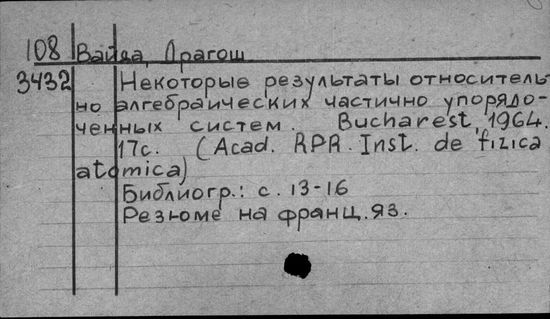 108 Вайда, Драгош
3432 Некоторые результаты относитель
но алгебраических частично упорядо-
ченных систем. Bucharest, 1964.
17с. (Acad. RPR. Inst. de fizica
atomica)
Библиогр.: с. 13-16
Резюме на франц. яз.